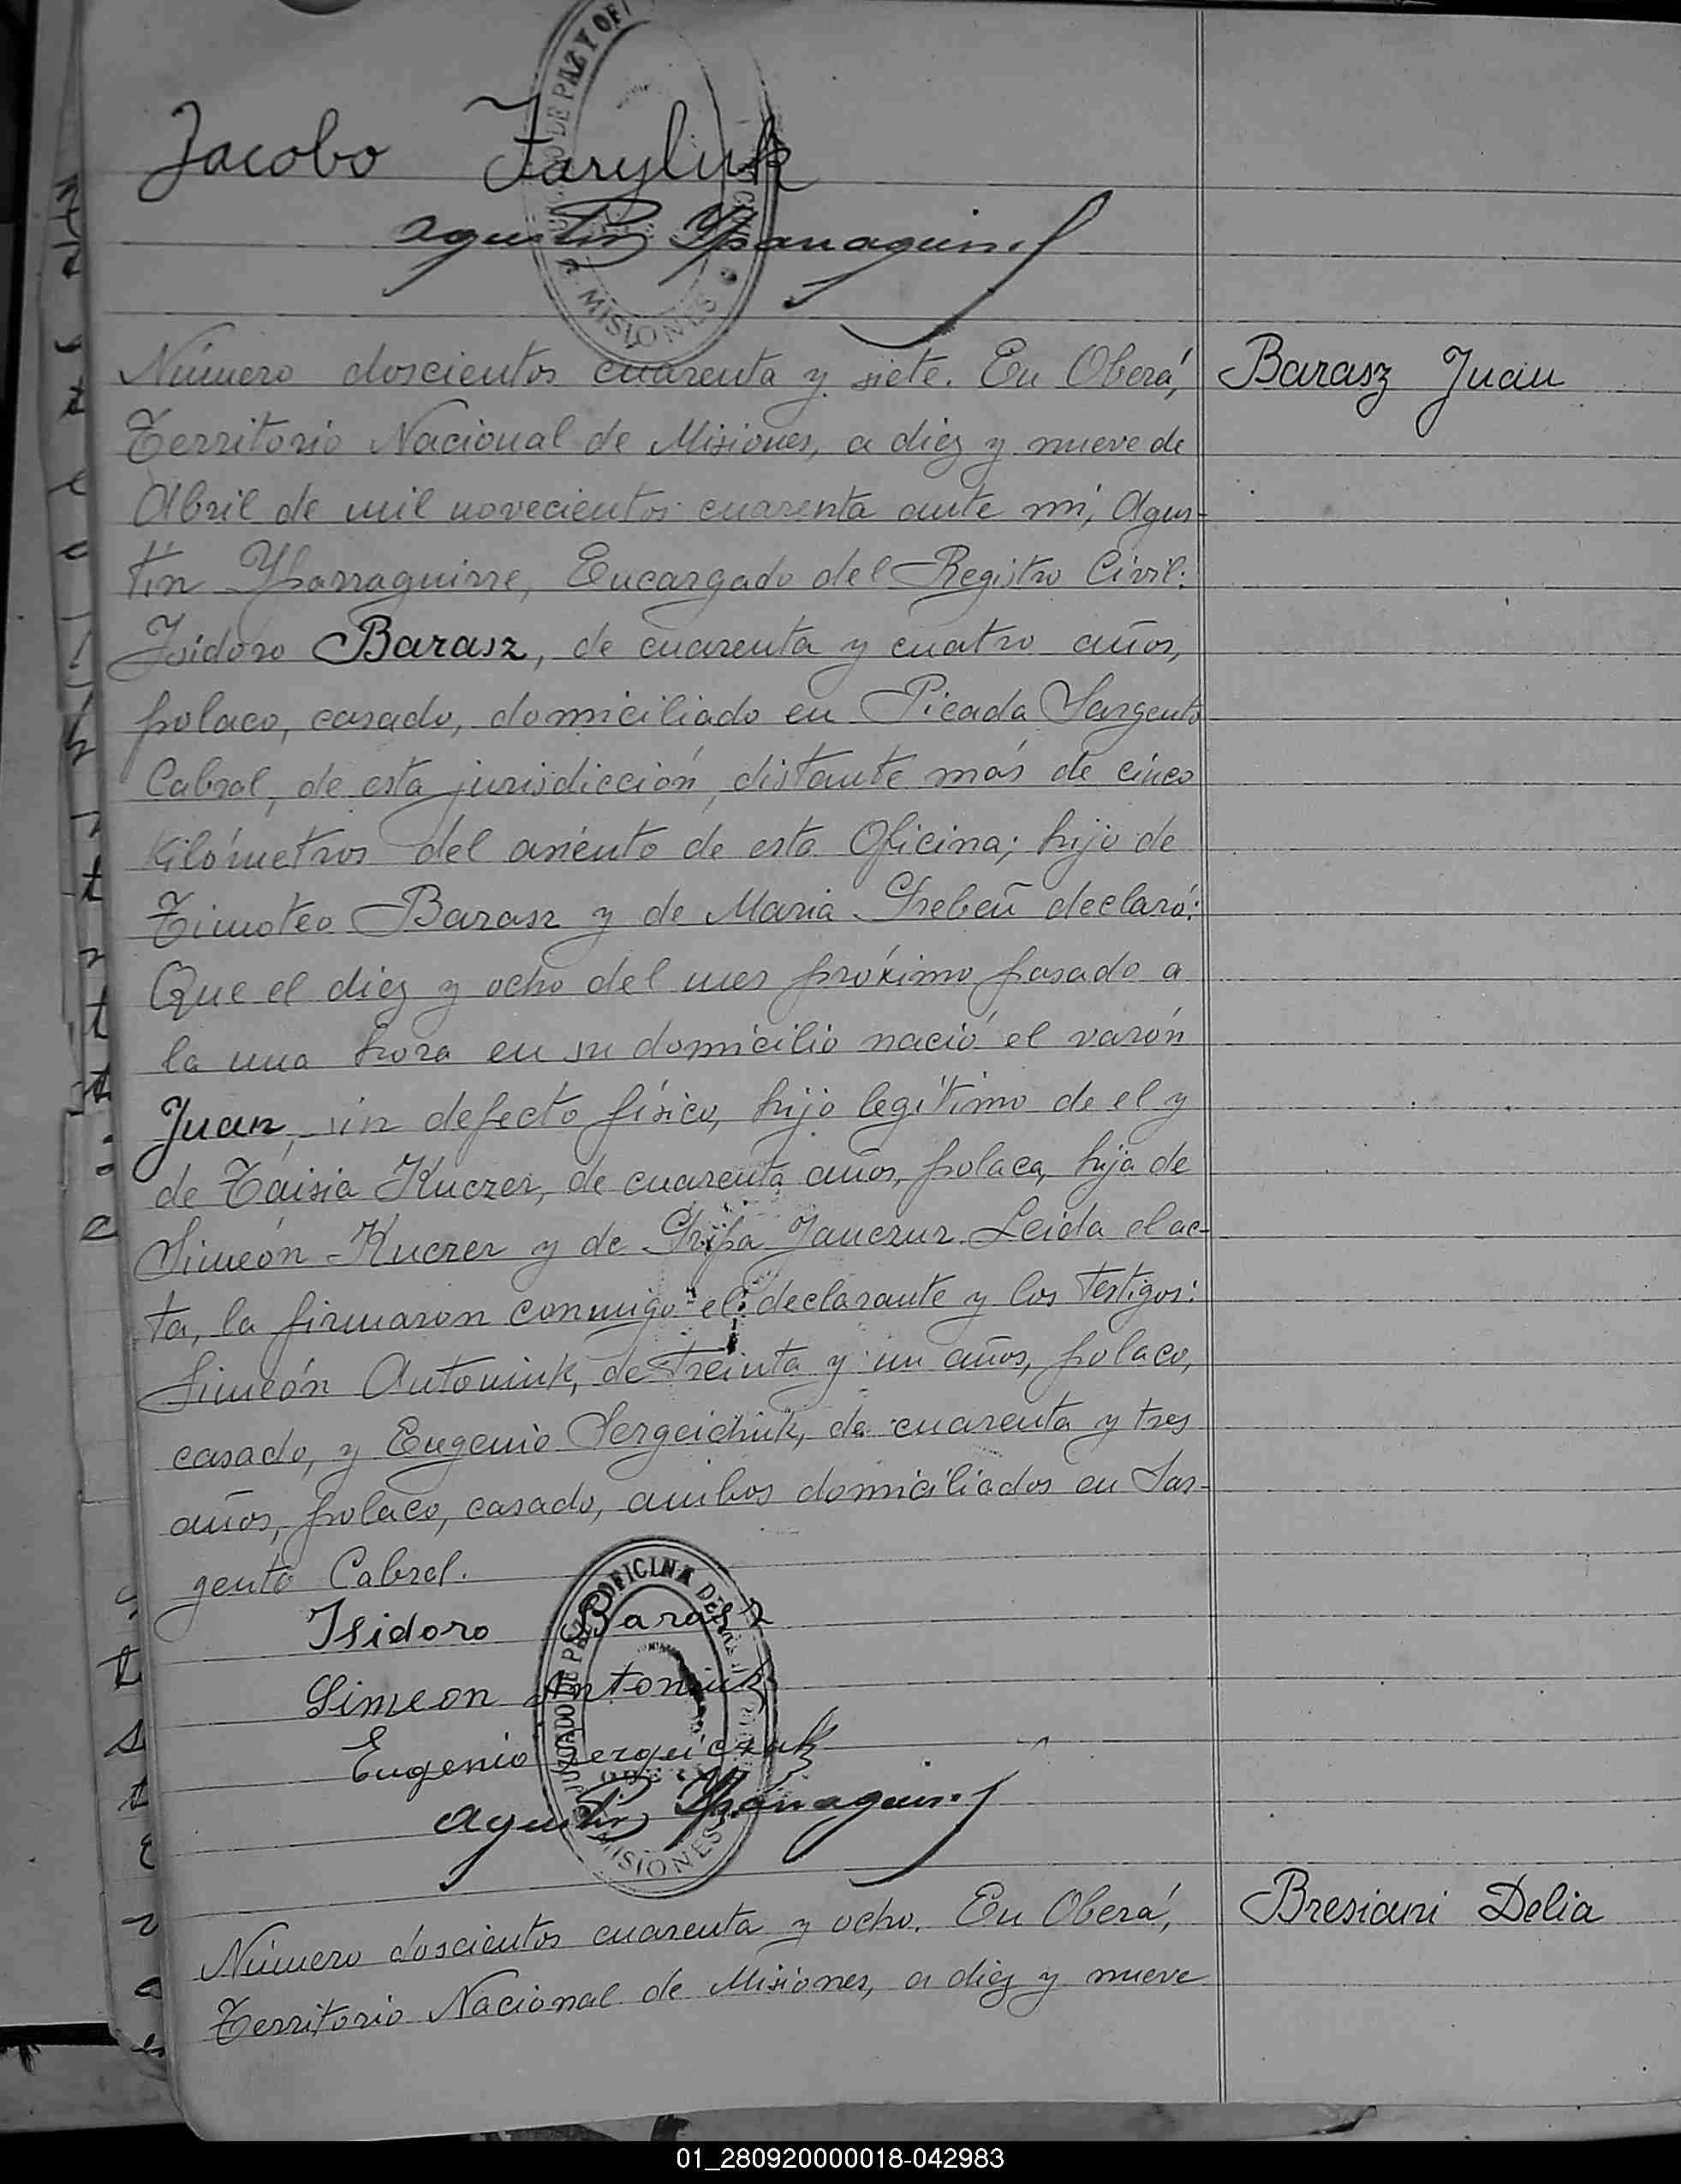 Jacobo Jaryluk
Agustin Yparraguirre
MISIONES
Número doscientos cuarenta y siete. En Oberá,
Barasz Juan
Territorio Nacional de Misiones, a diez y nueve de
Abril de mil novecientos cuarenta ante mi, Agus-
tin Yparraguirre, Encargado del Registro Civil:
Isidoro Barasz, de cuarenta y cuatro años,
polaco, casado, domiciliado en Picada Sargento
Cabral, de esta jurisdicción, distante más de cinco
Kilómetros del asiento de esta Oficina; hijo de
Timoteo Barasz y de Maria Grebeñ declaró:
Que el diez y ocho del mes próximo pasado a
la una hora en su domicilio nació el varón
Juan, sin defecto físico, hijo legítimo de el y
de Taisia Kuczer, de cuarenta años, polaca, hija de
Simeón Kuczer y de Gripa Janczur. Leida el ac-
ta, la firmaron conmigo el declarante y los testigos:
Simeón Antoniuk, de treinta y un años, polaco,
casado, y Eugenio Sergeichuk, de cuarenta y tres
años, polaco, casado, ambos domiciliados en Sar-
gento Cabral.
Isidoro Barasz
Simeon Antoniuk
Eugenio Serguiczuk
Agustin Yparraguirre
JUZGADO DE PAZ Y OFICINA DEL
MISIONES
Número doscientos cuarenta y ocho. En Oberá,
Bresiani Delia
Territorio Nacional de Misiones, a diez y nueve
01_280920000018-042983